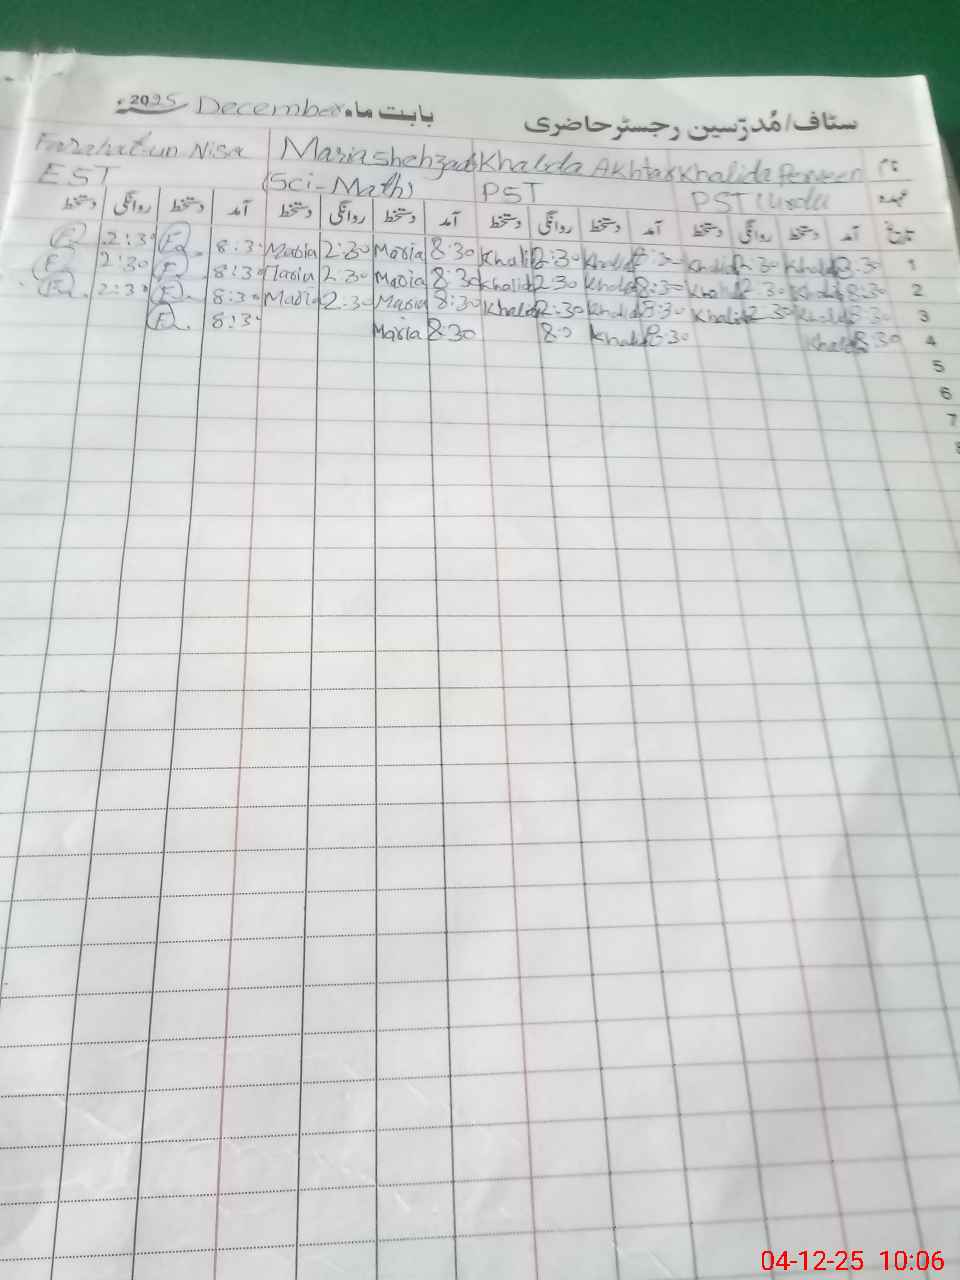 سٹاف/مُدرّسین رجسٹر حاضری بابت ماہ December 2025ء
نام Khalida Perveen Khalida Akhtar Maria shehzad Farahat-un Nisa
عہدہ PST Urdu PST (Sci-Math) EST
تاریخ آمد دستخط روانگی دستخط آمد دستخط روانگی دستخط آمد دستخط روانگی دستخط آمد دستخط روانگی دستخط
1 8:30 Khalid 2:30 Khalid 8:30 Khalid 2:30 Khalid 8:30 Maria 2:30 Maria 8:30 F. 2:30 F.
2 8:30 Khalid 2:30 Khalid 8:30 Khalid 2:30 Khalid 8:30 Maria 2:30 Maria 8:30 F. 2:30 F.
3 8:30 Khalid 2:30 Khalid 8:30 Khalid 2:30 Khalid 8:30 Maria 2:30 Maria 8:30 F. 2:30 F.
4 8:30 Khalid 8:30 Khalid 8:30 Maria 8:30 F.
5
6
7
8
04-12-25 10:06